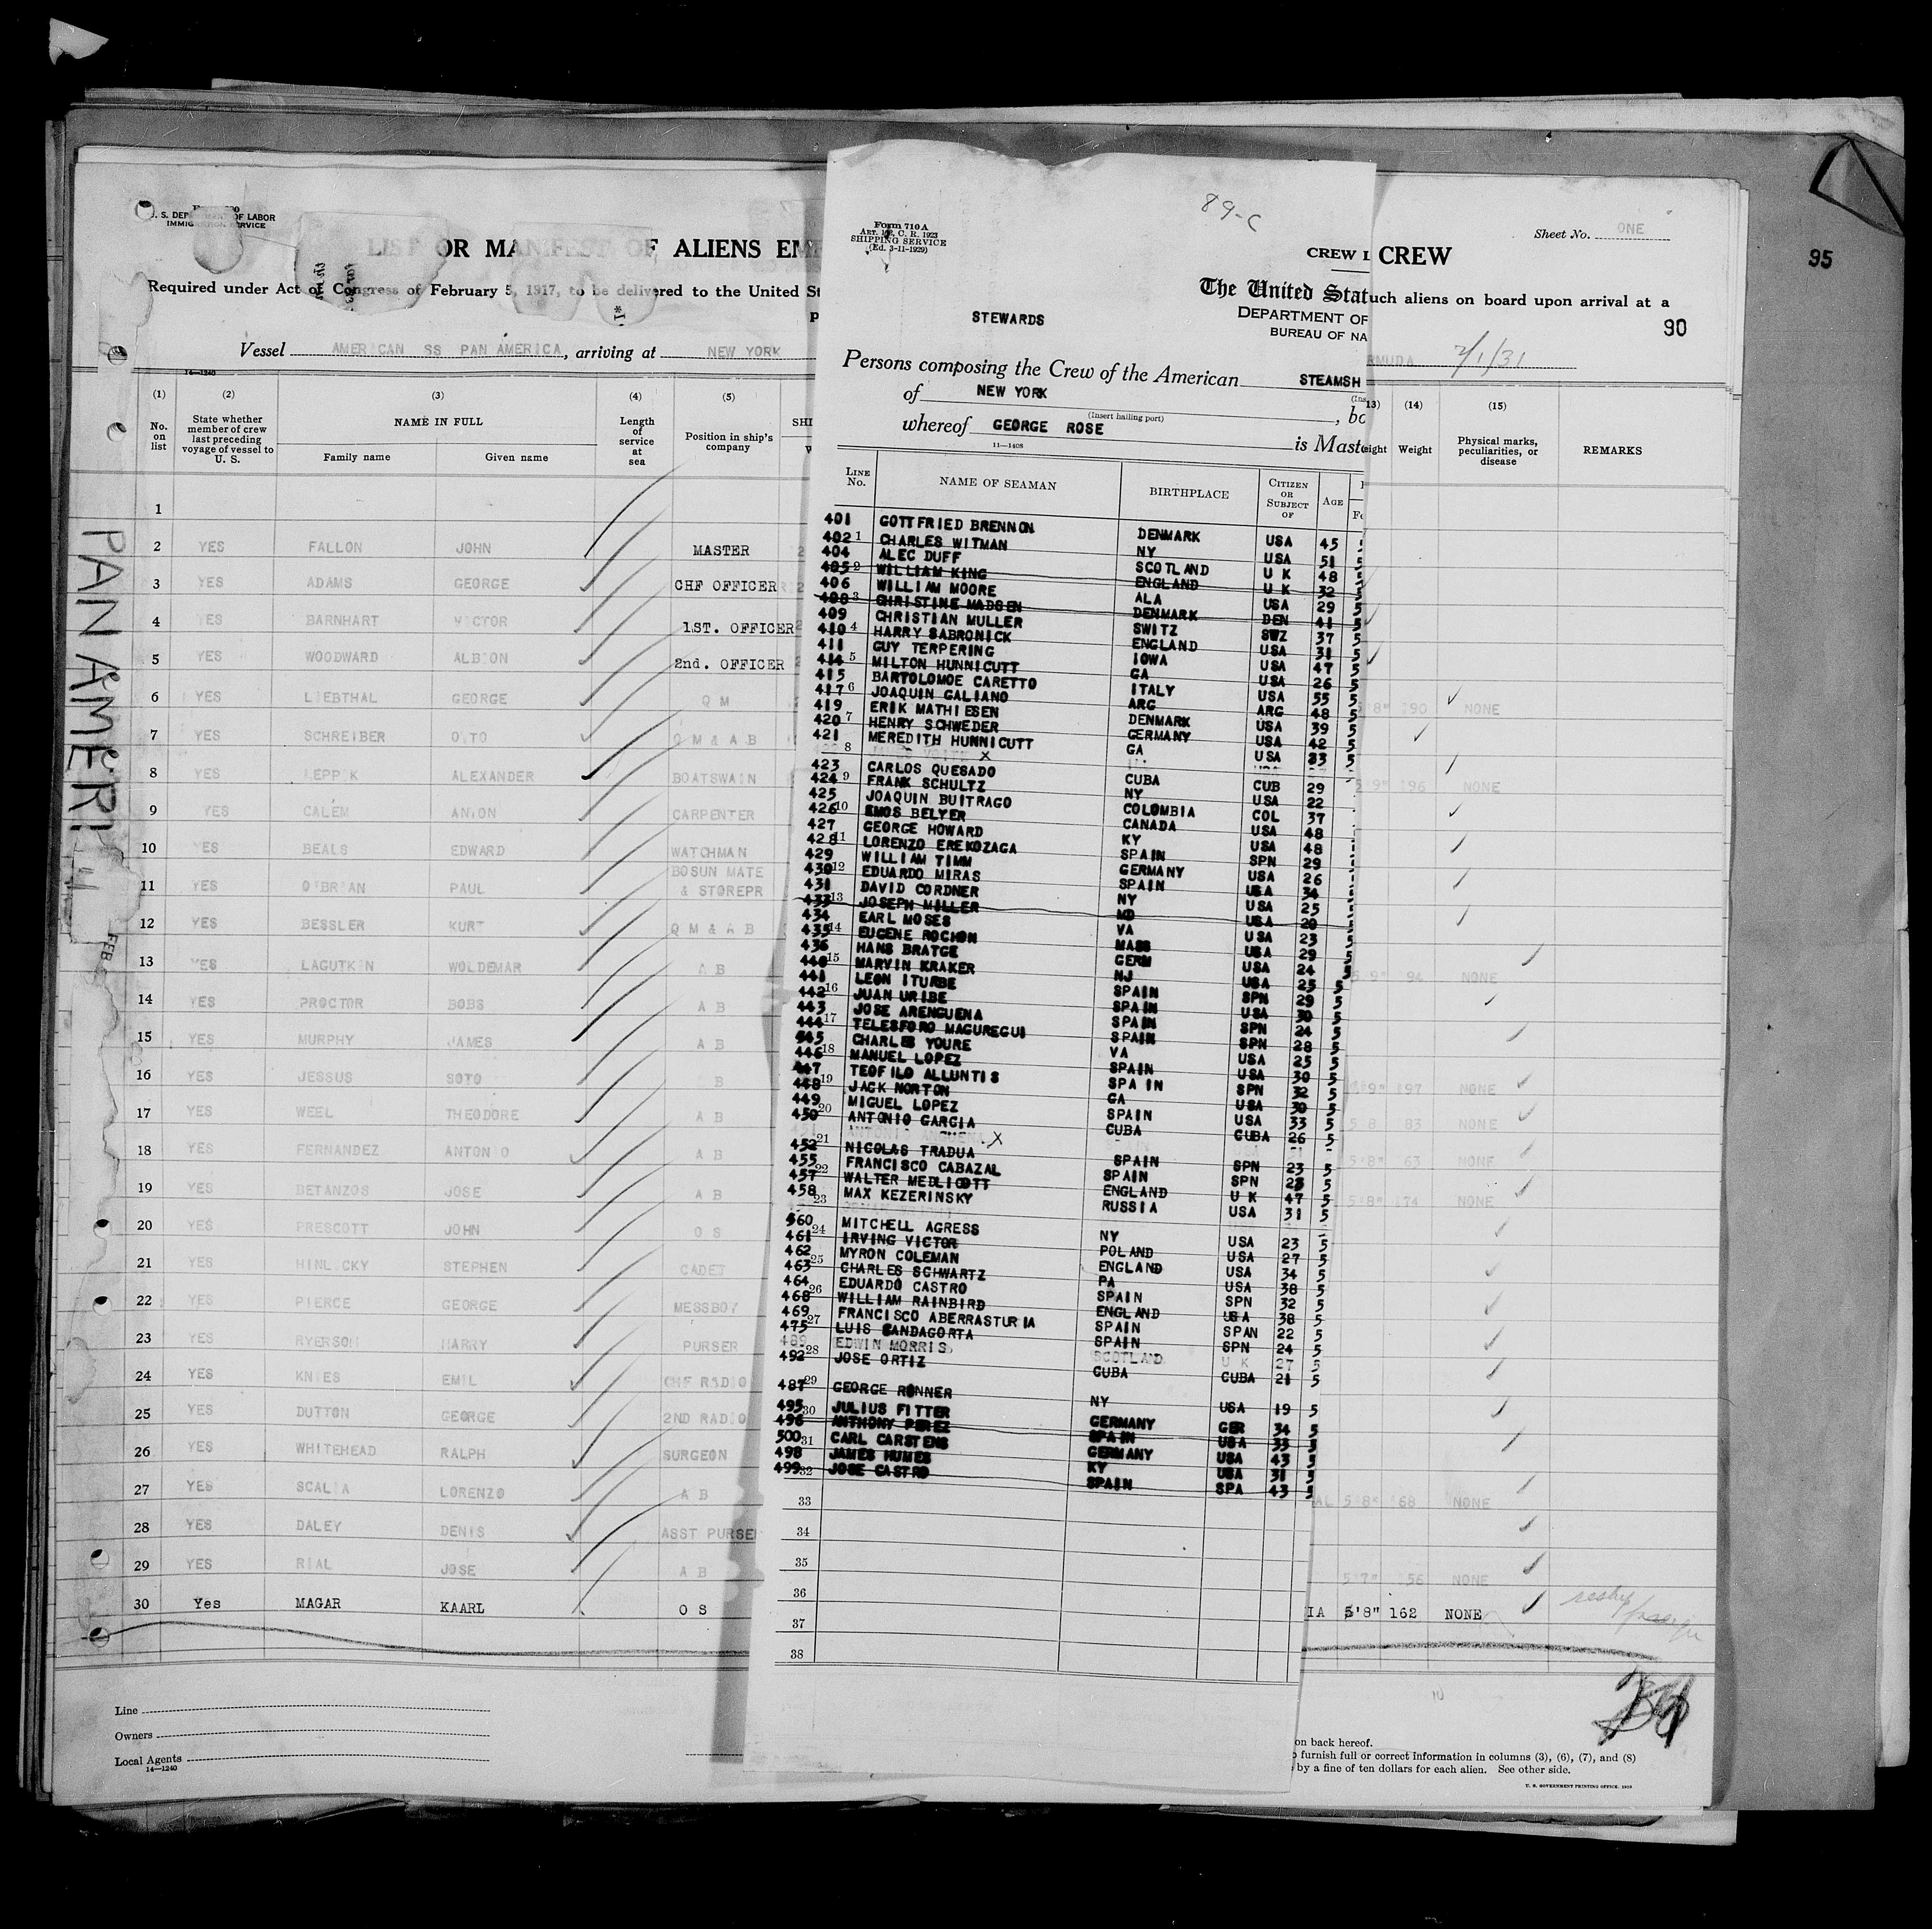 89-C
Sheet No. ONE
95
90
S. DEPARTMENT OF LABOR
IMMIGRATION SERVICE
LIST OR MANIFEST OF ALIENS EM
Required under Act of Congress of February 5, 1917, to be delivered to the United St
Vessel AMERICAN SS PAN AMERICA, arriving at NEW YORK
14—1240
PAN AMERI
FEB
(1) (2) (3) (4) (5)
No. on list
State whether member of crew last preceding voyage of vessel to U. S.
NAME IN FULL
Family name Given name
Length of service at sea
Position in ship's company
1
2 YES FALLON JOHN MASTER
3 YES ADAMS GEORGE CHF OFFICER
4 YES BARNHART VICTOR 1ST. OFFICER
5 YES WOODWARD ALBION 2nd. OFFICER
6 YES LIEBTHAL GEORGE Q M
7 YES SCHREIBER OTTO Q M & A B
8 YES LEPPIK ALEXANDER BOATSWAIN
9 YES CALEM ANTON CARPENTER
10 YES BEALS EDWARD WATCHMAN
11 YES O'BRIAN PAUL BOSUN MATE & STOREPR
12 YES BESSLER KURT Q M & A B
13 YES LAGUTKIN WOLDEMAR A B
14 YES PROCTOR BOBS A B
15 YES MURPHY JAMES A B
16 YES JESSUS SOTO B
17 YES WEEL THEODORE A B
18 YES FERNANDEZ ANTONIO A B
19 YES BETANZOS JOSE A B
20 YES PRESCOTT JOHN O S
21 YES HINLICKY STEPHEN CADET
22 YES PIERCE GEORGE MESSBOY
23 YES RYERSON HARRY PURSER
24 YES KNIES EMIL CHF RADIO
25 YES DUTTON GEORGE 2ND RADIO
26 YES WHITEHEAD RALPH SURGEON
27 YES SCALIA LORENZO A B
28 YES DALEY DENIS ASST PURSER
29 YES RIAL JOSE A B
30 Yes MAGAR KAARL O S
Line
Owners
Local Agents
14—1240
Form 710A
ART. C. R. 1923
SHIPPING SERVICE
(Ed. 3-11-1929)
CREW L
The United Stat
DEPARTMENT OF
BUREAU OF NA
STEWARDS
Persons composing the Crew of the American STEAMSH
of NEW YORK , bo
(Insert hailing port)
whereof GEORGE ROSE is Mast
11—1408
LINE No. NAME OF SEAMAN BIRTHPLACE CITIZEN OR SUBJECT OF AGE
401 GOTTFRIED BRENNON DENMARK USA 45
402 1 CHARLES WITMAN NY USA 51
404 ALEC DUFF SCOTLAND U K 48
405 2 WILLIAM KING ENGLAND U K 32
406 WILLIAM MOORE ALA USA 29
408 3 CHRISTINE MADSEN DENMARK DEN 41 5
409 CHRISTIAN MULLER SWITZ SWZ 37 5
410 4 HARRY SABRONICK ENGLAND USA 31 5
411 GUY TERPERING IOWA USA 47 5
414 5 MILTON HUNNICUTT GA USA 26 5
415 BARTOLOMOE CARETTO ITALY USA 55 5
417 6 JOAQUIN GALIANO ARG ARG 48 5
419 ERIK MATHIESEN DENMARK USA 39 5
420 7 HENRY SCHWEDER GERMANY USA 42 5
421 MEREDITH HUNNICUTT GA USA 23 5
8 X
423 CARLOS QUESADO CUBA CUB 29
424 9 FRANK SCHULTZ NY USA 22
425 JOAQUIN BUITRAGO COLOMBIA COL 37
426 10 EMOS BELYER CANADA USA 48
427 GEORGE HOWARD KY USA 48
428 11 LORENZO EREKOZAGA SPAIN SPN 29
429 WILLIAM TIMM GERMANY USA 26
430 12 EDUARDO MIRAS SPAIN USA 34
431 DAVID CORDNER NY USA 25
433 13 JOSEPH MILLER MD USA 20
434 EARL MOSES VA USA 23
435 14 EUGENE ROCHON MASS USA 29
436 HANS BRATGE GERM USA 24
440 15 MARVIN KRAKER NJ USA 25 5
441 LEON ITURBE SPAIN SPN 29 5
442 16 JUAN URIBE SPAIN USA 30 5
443 JOSE ARENGUENA SPAIN SPN 24 5
444 17 TELESFORO MAGUREGUI SPAIN SPN 28 5
545 CHARLES YOURE VA USA 25 5
446 18 MANUEL LOPEZ SPAIN USA 30 5
447 TEOFILO ALLUNTIS SPAIN SPN 32 5
448 19 JACK NORTON GA USA 30 5
449 MIGUEL LOPEZ SPAIN USA 33 5
450 20 ANTONIO GARCIA CUBA CUBA 26 5
21 X
452 NICOLAS TRADUA SPAIN SPN 23 5
455 22 FRANCISCO CABAZAL SPAIN SPN 23 5
457 WALTER MEDLICOTT ENGLAND U K 47 5
458 23 MAX KEZERINSKY RUSSIA USA 31 5
560 MITCHELL AGRESS NY USA 23 5
461 24 IRVING VICTOR POLAND USA 27 5
462 MYRON COLEMAN ENGLAND USA 34 5
463 25 CHARLES SCHWARTZ PA USA 38 5
464 EDUARDO CASTRO SPAIN SPN 32 5
468 26 WILLIAM RAINBIRD ENGLAND USA 38 5
469 FRANCISCO ABERRASTURIA SPAIN SPAN 22 5
475 27 LUIS GANDAGORTA SPAIN SPN 24 5
489 EDWIN MORRIS SCOTLAND U K 27 5
492 28 JOSE ORTIZ CUBA CUBA 21 5
487 29 GEORGE RONNER NY USA 19 5
495 30 JULIUS FITTER GERMANY GER 34 5
496 ANTHONY PEREZ SPAIN USA 33 5
500 31 CARL CARSTENS GERMANY USA 43 5
498 JAMES HUMES KY USA 31 5
499 32 JOSE CASTRO SPAIN SPA 43 5
33
34
35
36
37
38
CREW
uch aliens on board upon arrival at a
RMUDA 2/1/31
13) (14) (15)
eight Weight Physical marks, peculiarities, or disease REMARKS
5'8" 190 NONE
5'9" 196 NONE
5'9" 94 NONE
5'9" 197 NONE
5'8 183 NONE
5'8" 163 NONE
5'8" 174 NONE
AL 5'8" 168 NONE
5'7" 156 NONE
IA 5'8" 162 NONE
on back hereof.
o furnish full or correct information in columns (3), (6), (7), and (8)
by a fine of ten dollars for each alien. See other side.
U. S. GOVERNMENT PRINTING OFFICE